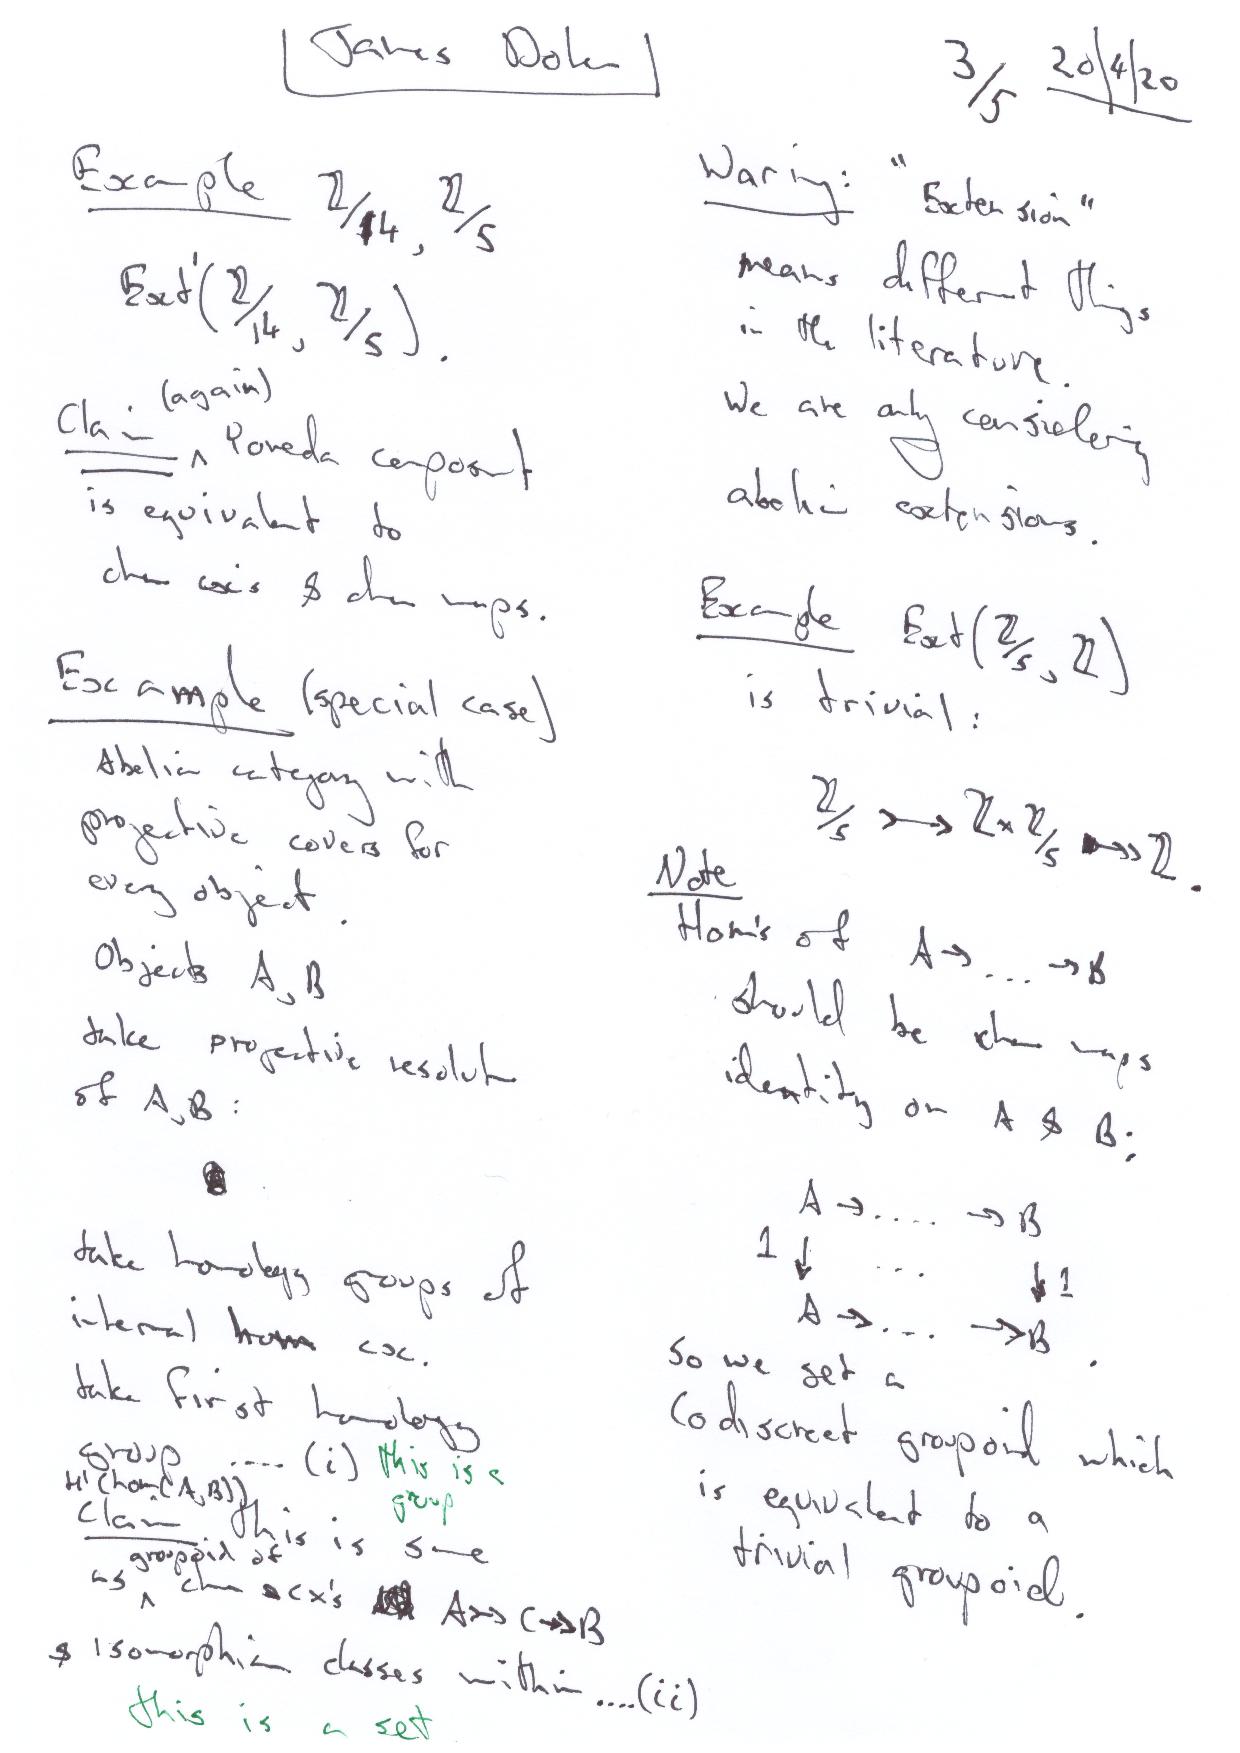 James Dolan
3/5 20/4/20
Example ℤ/14, ℤ/5
Ext'(ℤ/14, ℤ/5).
(again)
Claim ∧ Yoneda composit
is equivalent to
chain cx's & chain maps.
Example (special case)
Abelian category with
projective covers for
every object.
Objects A, B
take projective resolut
of A, B:
take homology groups of
internal hom cx.
take first homology
group .... (i) this is a
group
H'(hom(A,B))
Claim this is same
groupoid of
as ∧ chain cx's A ↣ C ↠ B
& isomorphism classes within ....(ii)
this is a set
Waring: "Extension"
means different things
in the literature.
We are only considering
abelian extensions.
Example Ext(ℤ/5, ℤ)
is trivial:
ℤ/5 ↣ ℤ × ℤ/5 ↠ ℤ.
Note
Hom's of A → ... → B
should be chain maps
identity on A & B:
A → .... → B
1 ↓ ... ↓ 1
A → .... → B.
so we get a
codiscreet groupoid which
is equivalent to a
trivial groupoid.